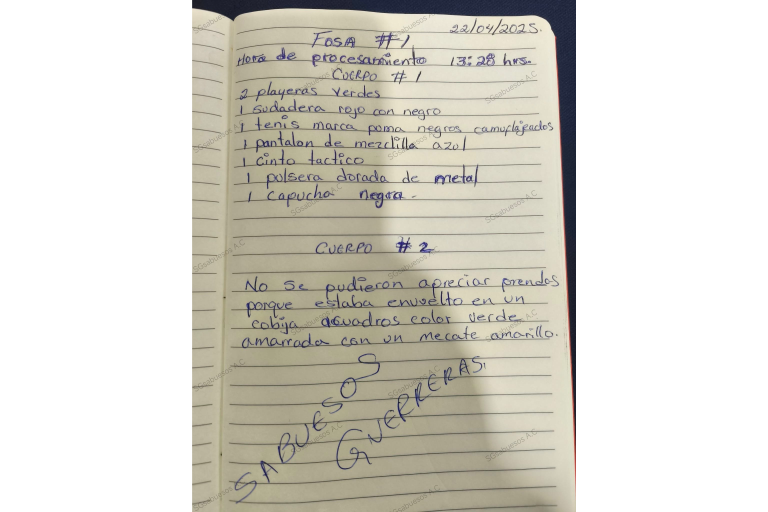 22/04/2025.
FOSA #1
Hora de procesamiento 13:28 hrs.
CUERPO #1
2 playeras verdes
1 sudadera rojo con negro
1 tenis marca poma negros camuflajeados
1 pantalon de mezclilla azul
1 cinto tactico
1 pulsera dorada de metal
1 capucha negra.
CUERPO #2
No se pudieron apreciar prendas
porque estaba envuelto en un
cobija acuadros color verde
amarrada con un mecate amarillo.
SABUESOS
GUERRERAS.
SGsabuesos A.C